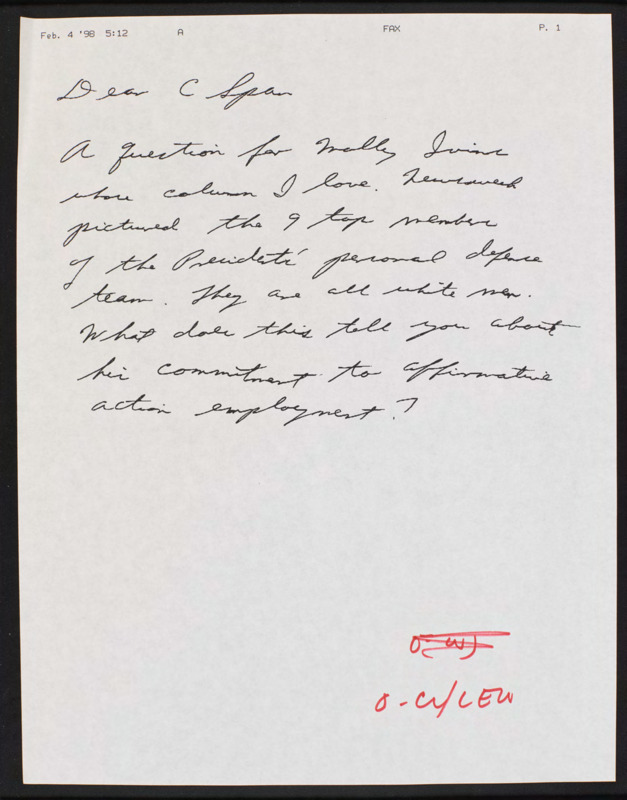 Feb. 4 '98 5:12 A FAX P. 1
Dear C Span
A question for Molly Ivins
whose column I love. Newsweek
pictured the 9 top members
of the Presidents' personal defense
team. They are all white men.
What does this tell you about
his commitment to affirmative
action employment?
O-